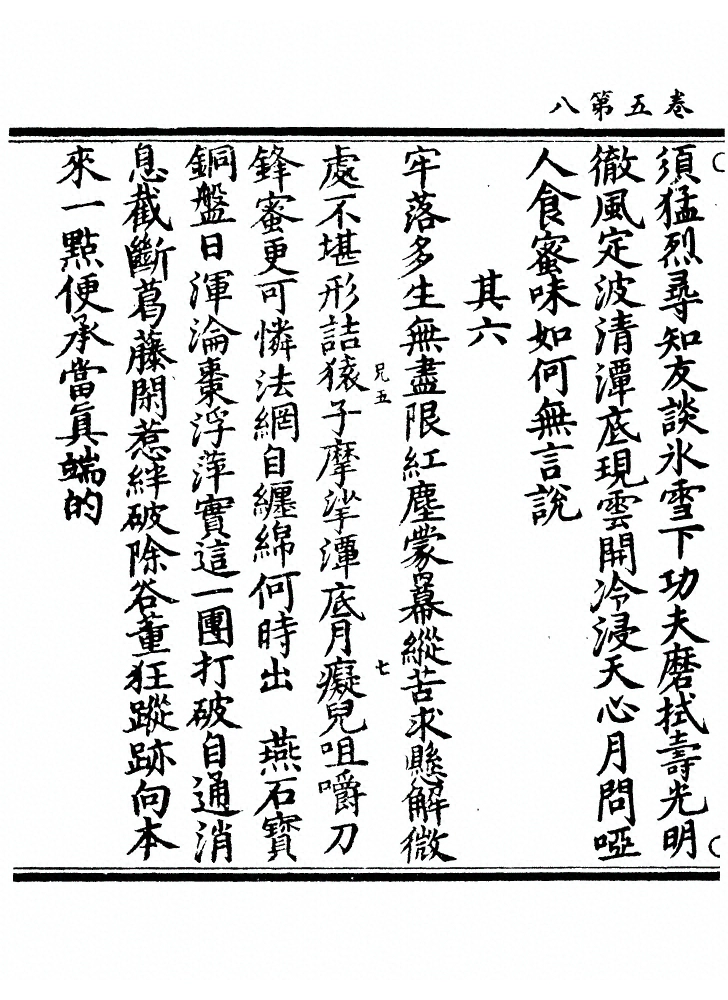 卷五第八
須猛烈尋知友談氷雪下功夫磨拭壽光明
徹風定波清潭底現雲開冷浸天心月問啞
人食蜜味如何無言說
其六
牢落多生無盡限紅塵蒙幕縱苦求懸解微
處不堪形詰猿子摩挲潭底月癡兒咀嚼刀
兄五
七
鋒蜜更可憐法網自纏綿何時出 燕石寶
銅盤日渾淪棗浮萍實這一團打破自通消
息截斷葛藤閑惹絆破除谷董狂蹤跡向本
來一點便承當眞端的